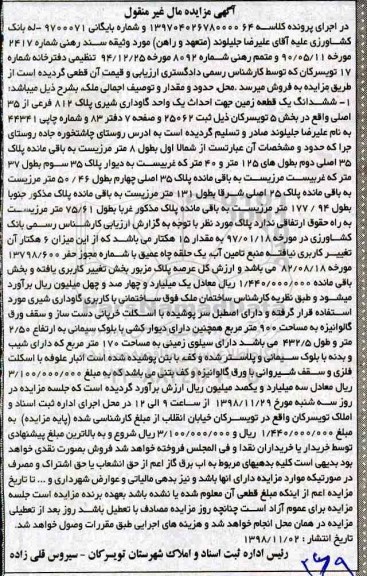 آگهی مزایده مال غیر منقول
در اجرای پرونده کلاسه ۱۳۹۷۰۴۰۲۶۷۸۰۰۰۰۶۴ و شماره بایگانی ۹۷۰۰۰۷۱ -له بانک
کشاورزی علیه آقای علیرضا جلیلوند (متعهد و راهن) مورد وثیقه سند رهنی شماره ۲۴۱۷
مورخه ۹۰/۰۵/۱۱ و متمم رهنی شماره ۸۰۹۲ مورخه ۹۴/۱۲/۲۵ تنظیمی دفترخانه شماره
۱۷ تویسرکان که توسط کارشناس رسمی دادگستری ارزیابی و قیمت آن قطعی گردیده است از
طریق مزایده به فروش میرسد .محل، حدود و مقدار و توصیف اجمالی ملک، بشرح ذیل میباشد:
۱- ششدانگ یک قطعه زمین جهت احداث یک واحد گاوداری شیری پلاک ۸۱۲ فرعی از ۳۵
اصلی واقع در بخش ۵ تویسرکان ذیل ثبت ۲۵۰۶۲ و صفحه ۷ دفتر ۸۳ و شماره چاپی ۴۴۳۴۱
به نام علیرضا جلیلوند صادر و تسلیم گردیده است به ادرس روستای چاشتخوره جاده روستای
جرا که حدود و مشخصات آن عبارتست از شمالا اول بطول ۸ متر مرزیست به باقی مانده پلاک
۳۵ اصلی دوم بطول های ۱۲۵ متر و ۴۰ متر که غربیست به دیوار پلاک ۳۵ سوم بطول ۳۷
متر که غربیست مرزیست به باقی مانده پلاک ۳۵ اصلی چهارم بطول ۴۶ / ۵۰ متر مرزیست
به باقی مانده پلاک ۲۵ اصلی شرقا بطول ۱۳۱ متر مرزیست به باقی مانده پلاک مذکور جنوبا
بطول ۹۴ / ۱۷۷ متر مرزیست به باقی مانده پلاک مذکور غربا بطول ۷۵/۶۱ متر مرزیست
به راه حقوق ارتفاقی ندارد پلاک مورد نظر با توجه به گزارش ارزیابی کارشناس رسمی بانک
کشاورزی در مورخه ۹۷/۰۱/۱۸ به مقدار ۱۵ هکتار می باشد که از این میزان ۶ هکتار آن
تغییر کاربری نیافته منبع تامین آب یک حلقه چاه عمیق با شماره مجوز حفر ۱۳۷۹۸/۶۰۰
مورخه ۸۲/۰۸/۱۸ می باشد و ارزش کل عرصه پلاک مزبور بخش تغییر کاربری یافته و بخش
باقی مانده ۱/۴۴۰/۰۰۰/۰۰۰ ریال معادل یک میلیارد و چهار صد و چهل میلیون ریال برآورد
میشود و طبق نظریه کارشناس ساختمان ملک فوق ساختمانی با کاربری گاوداری شیری مورد
استفاده قرار گرفته و دارای اصطبل سر پوشیده با اسکلت خرپائی دست ساز و سقف ورق
گالوانیزه به مساحت ۹۰۰ متر مربع همچنین دارای دیوار کشی با بلوک سیمانی به ارتفاع ۲/۵۰
متر و طول ۴۳۲/۵ می باشد دارای سیلوی زمینی به مساحت ۱۷۰ متر مربع که دارای شیب
و بدنه با بلوک سیمانی و پلاستر شده و کف با بتن پوشیده شده است انبار علوفه با اسکلت
فلزی و سقف شیروانی با ورق گالوانیزه و کف بتنی می باشد که به مبلغ ۳/۱۰۰/۰۰۰/۰۰۰
ریال معادل سه میلیارد و یکصد میلیون ریال ارزش برآورد گردیده است که جلسه مزایده در
روز سه شنبه مورخ ۱۳۹۸/۱۱/۲۹ از ساعت ۹ الی ۱۲ در محل اجرای اداره ثبت اسناد و
املاک تویسرکان واقع در تویسرکان خیابان انقلاب از مبلغ کارشناسی شده (پایه مزایده) به
مبلغ ۱/۴۴۰/۰۰۰/۰۰۰ ریال و ۳/۱۰۰/۰۰۰/۰۰۰ ریال شروع و به بالاترین مبلغ پیشنهادی
توسط خریدار یا خریداران نقدا و فی المجلس فروخته خواهد شد فروش بصورت نقدی خواهد
بود بدیهی است کلیه بدهیهای مربوط به آب برق گاز اعم از حق انشعاب یا حق اشتراک و مصرف
در صورتیکه موارد مزایده دارای آنها باشد و نیز بدهی مالیاتی و عوارض شهرداری و ... تا تاریخ
مزایده اعم از اینکه مبلغ قطعی آن معلوم شده یا نشده باشد بعهده برنده مزایده است جلسه
مزایده برای عموم آزاد است چنانچه روز مزایده مصادف با تعطیل باشد روز بعد از تعطیلی
مزایده در همان محل انجام خواهد شد و هزینه های اجرایی طبق مقررات وصول خواهد شد.
تاریخ انتشار : ۱۳۹۸/۱۱/۰۲
رئیس اداره ثبت اسناد و املاک شهرستان تویسرکان - سیروس قلی زاده